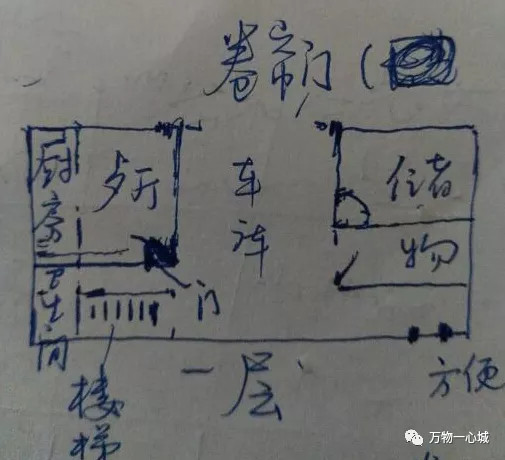 卷帘门(
厨房
歺厅
车库
储
物
卫生间
门
一层
方便
楼梯
万物一心城